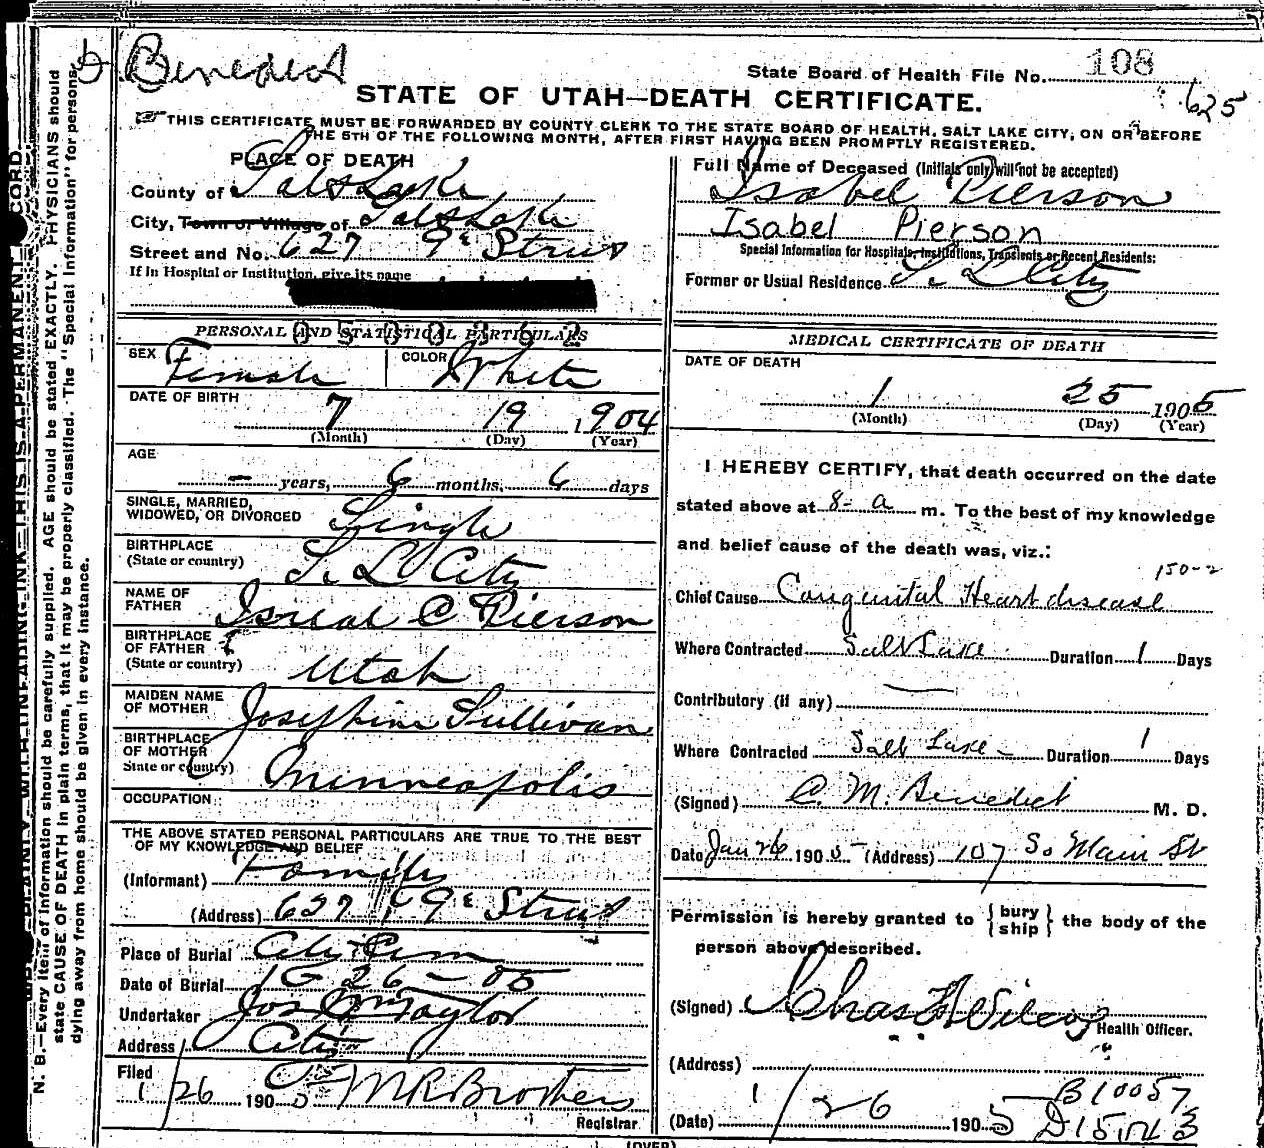 Benedict
State Board of Health File No. 108
625
STATE OF UTAH—DEATH CERTIFICATE.
THIS CERTIFICATE MUST BE FORWARDED BY COUNTY CLERK TO THE STATE BOARD OF HEALTH, SALT LAKE CITY, ON OR BEFORE
THE 5TH OF THE FOLLOWING MONTH, AFTER FIRST HAVING BEEN PROMPTLY REGISTERED.
PLACE OF DEATH
County of Salt Lake
City, Town or Village of Salt Lake
Street and No. 627 9E Street
If in Hospital or Institution, give its name
PERSONAL AND STATISTICAL PARTICULARS
SEX Female COLOR White
DATE OF BIRTH
7 19 1904
(Month) (Day) (Year)
AGE
— years, 6 months, 6 days
SINGLE, MARRIED,
WIDOWED, OR DIVORCED Single
BIRTHPLACE
(State or country) S. L. City
NAME OF
FATHER Isreal C Pierson
BIRTHPLACE
OF FATHER
(State or country) Utah
MAIDEN NAME
OF MOTHER Josephine Sullivan
BIRTHPLACE
OF MOTHER
State or country) Minneapolis
OCCUPATION
THE ABOVE STATED PERSONAL PARTICULARS ARE TRUE TO THE BEST
OF MY KNOWLEDGE AND BELIEF
(Informant) Family
(Address) 627 9E Street
Place of Burial City Cem
Date of Burial 1-26-05
Undertaker Jos Wm Taylor
Address City
Filed
1/26 1905 M R Brothers
Registrar
Full Name of Deceased (Initials only will not be accepted)
Isabel Pierson
Isabel Pierson
Special Information for Hospitals, Institutions, Transients or Recent Residents:
Former or Usual Residence S. L City
MEDICAL CERTIFICATE OF DEATH
DATE OF DEATH
1 25 1905
(Month) (Day) (Year)
I HEREBY CERTIFY, that death occurred on the date
stated above at 8- a m. To the best of my knowledge
and belief cause of the death was, viz.:
150-2
Chief Cause Congenital Heart disease
Where Contracted Salt Lake Duration 1 Days
Contributory (if any) —
Where Contracted Salt Lake Duration 1 Days
(Signed) C. M. Benedict M. D.
Date Jan 26 1905 (Address) 107 So Main St
Permission is hereby granted to {bury
ship} the body of the
person above described.
(Signed) Chas F. Wilcox
Health Officer.
(Address)
B10057
(Date) 1/26 1905
N. B.—Every item of information should be carefully supplied. AGE should be stated EXACTLY. PHYSICIANS should
state CAUSE OF DEATH in plain terms, that it may be properly classified. The "Special Information" for persons
dying away from home should be given in every instance.
(OVER)